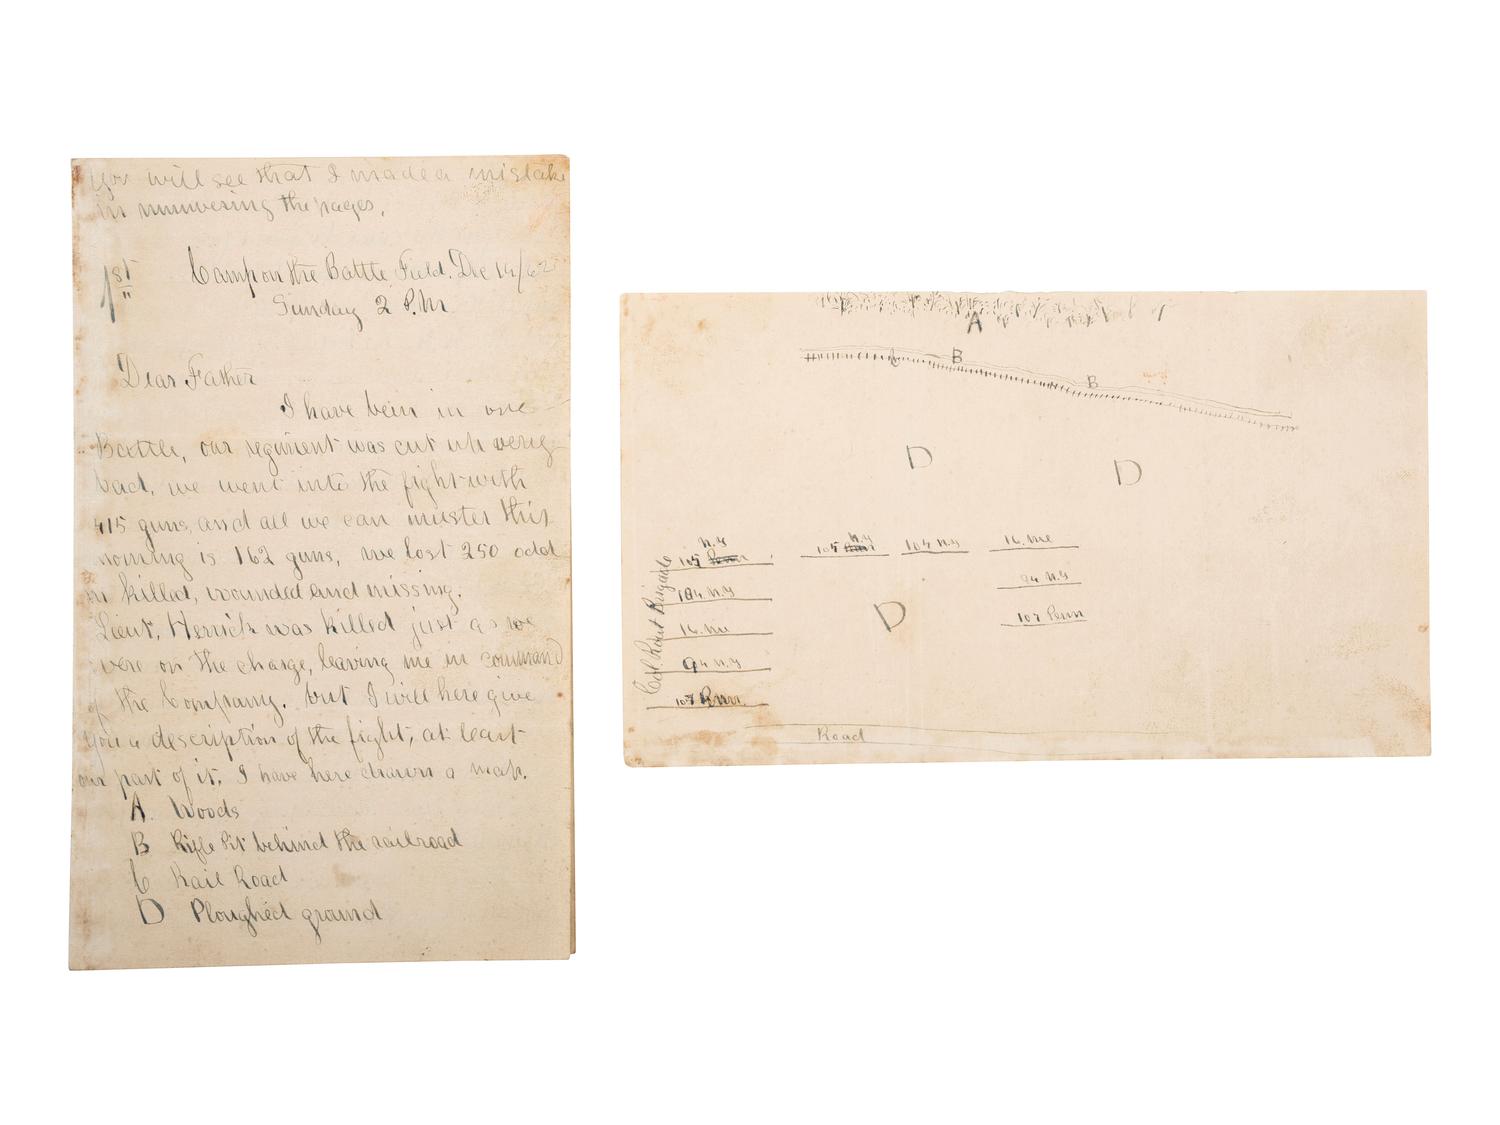 You will see that I made a mistake
in numvering the pages,
1st
Camp on the Battle Field. Dec 14/62
Sunday 2 P.M
Dear Father
I have bein in one
Battle, our regiment was cut up verry
bad, we went into the fight with
415 guns, and all we can muster this
morning is 162 guns, we lost 250 odd
in killed, wounded and missing.
Lieut. Herrick was killed just as we
were on the charge, leaving me in command
of the Company. but I will here give
you a description of the fight, at least
our part of it. I have here drawn a map.
A. Woods
B Rifle Pit behind the railroad
C Rail Road
D Ploughed ground
A
C B
B
D D
Col. Root Brigade
N.Y
105 Penn
104 N.Y
16. Me
94 N.Y
107 Penn
N.Y
105 Penn 104 N.Y 16. Me
94 N.Y
107 Penn
D
Road